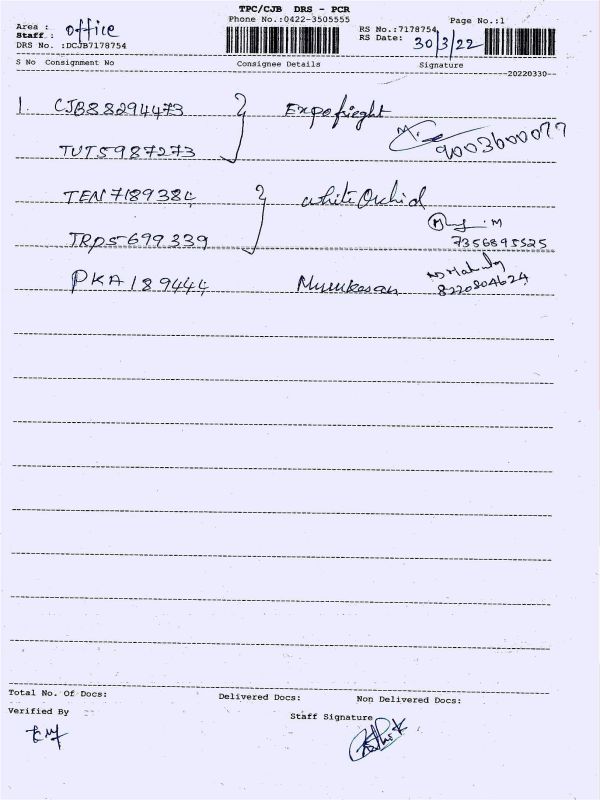 TPC/CJB DRS - PCR
Phone No.:0422-3505555
Page No.:1
Area : office
Staff :
RS No.:7178754
RS Date: 30/3/22
DRS No. :DCJB7178754
S No Consignment No Consignee Details Signature
20220330
1. CJB88294473 Expofrieght
9003600077
TUT5987273
TEN7189384 white Orchid
M
TRP5699339 7356895525
PKA189444 Murukesan
8220804624
Total No. Of Docs: Delivered Docs: Non Delivered Docs:
Verified By Staff Signature